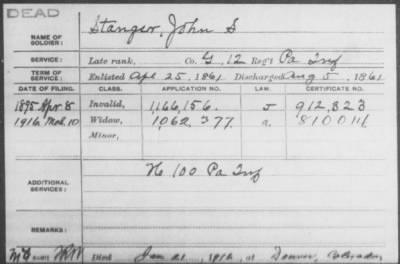 DEAD
NAME OF SOLDIER: Stanger, John S
SERVICE: Late rank, Co. G, 12 Reg't Pa Inf
TERM OF SERVICE: Enlisted Apr. 25, 1861 Discharged Aug 5, 1861
DATE OF FILING. CLASS. APPLICATION NO. LAW. CERTIFICATE NO.
1895 Apr 8 Invalid, 1,166,156. J 912,323
1916 Mch 10 Widow, 1,062,377. a. 810011
Minor,
ADDITIONAL SERVICES: H 100 Pa Inf
REMARKS:
Died Jan 21, 1916, at Denver, Colorado